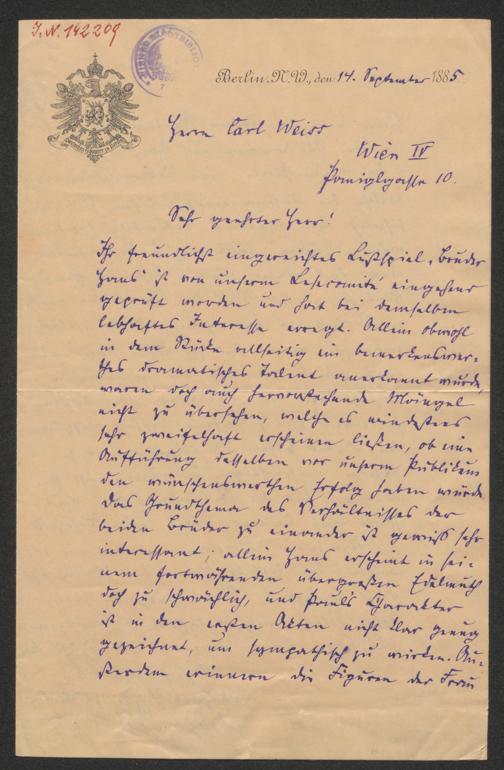 J.N. 142209
WIENER STADTBIBLIO
Berlin. N.W., den 14. September 1885
Herrn Carl Weiss
Wien IV
Paniglgasse 10.
Sehr geehrter Herr!
Ihr freundlichst eingereichtes Lustspiel „Bruder
Hans" ist von unserm Lesecomité eingehend
geprüft worden und hat bei demselben
lebhaftes Interesse erregt. Allein obwohl
in dem Stücke allseitig ein bemerkenswer-
thes dramatisches Talent anerkannt wurde,
waren doch auch hervorstechende Mängel
nicht zu übersehen, welche es mindestens
sehr zweifelhaft erscheinen ließen, ob eine
Aufführung desselben vor unserm Publikum
den wünschenswerthen Erfolg haben würde.
Das Grundthema des Verhältnisses der
beiden Brüder zu einander ist gewiss sehr
interessant; allein Hans erscheint in sei-
nem fortwährenden übergroßen Edelmuth
doch zu schwächlich, und Paul's Charakter
ist in den ersten Akten nicht klar genug
gezeichnet, um sympathisch zu wirken. Au-
ßerdem erinnern die Figuren der Frau